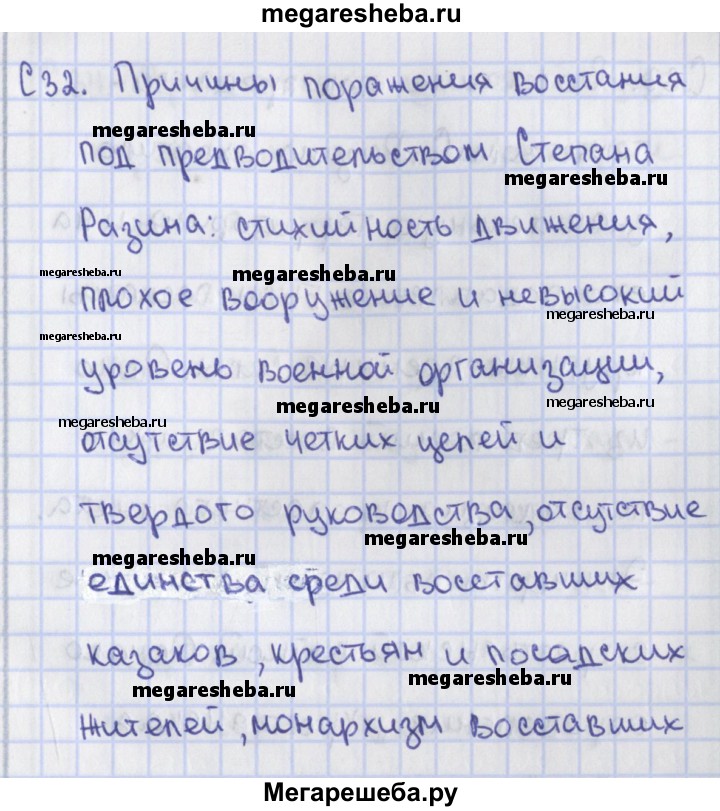 megaresheba.ru
С32. Причины поражения восстания
megaresheba.ru
под предводительством Степана
megaresheba.ru
Разина: стихийность движения,
megaresheba.ru
megaresheba.ru
плохое вооружение и невысокий
megaresheba.ru
megaresheba.ru
уровень военной организации,
megaresheba.ru
megaresheba.ru
megaresheba.ru
отсутствие четких целей и
твердого руководства, отсутствие
megaresheba.ru
megaresheba.ru
единства среди восставших
казаков, крестьян и посадских
megaresheba.ru
megaresheba.ru
жителей, монархизм восставших
Мегарешеба.ру